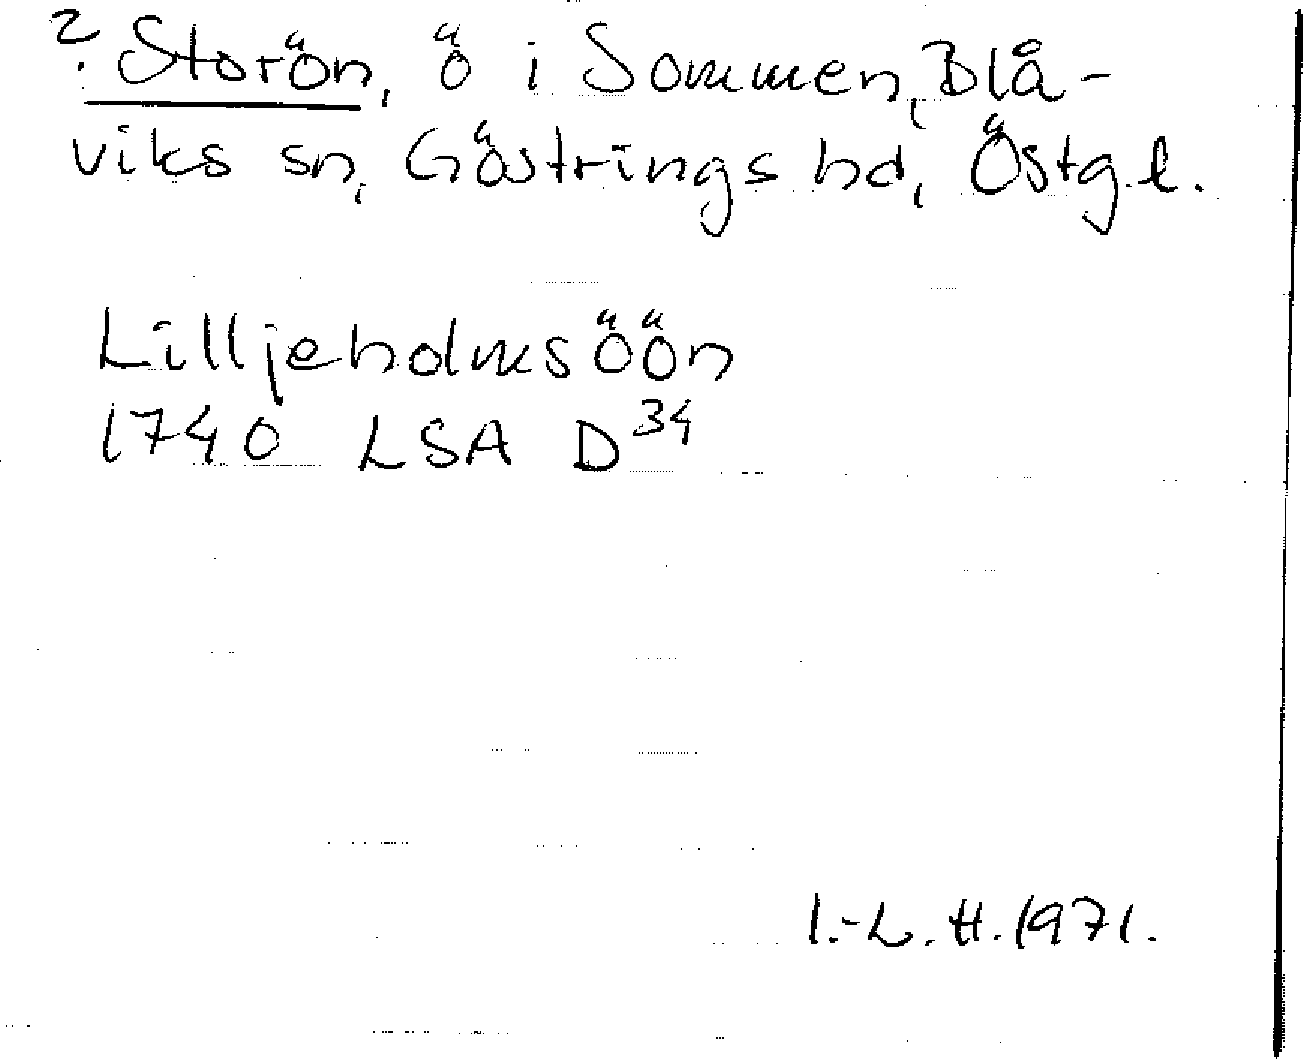 ? Storön, ö i Sommen, Blå-
viks sn, Göstrings hd, Östg.l.
Lilljeholmsöön
1740 LSA D34
I.-L. H. 1971.